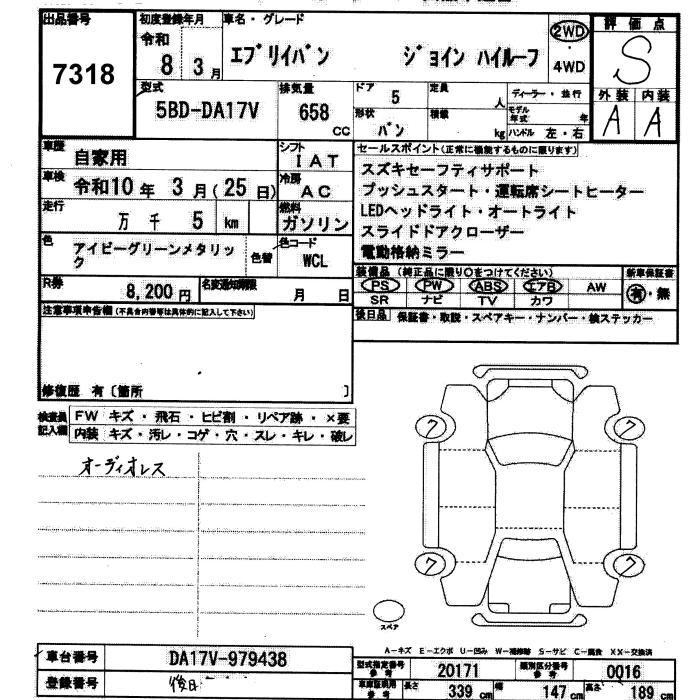 出品番号
7318
初度登録年月
令和
8 3月
車名・グレード
エブリイバン ジョイン ハイルーフ
2WD
4WD
評価点
S
外装 内装
A A
型式
5BD-DA17V
排気量
658
CC
ドア 5
形状
バン
定員
人
積載
kg
ディーラー・並行
モデル年式 年
ハンドル 左・右
車歴 自家用
車検 令和10年 3月(25日)
走行
万 千 5 km
色 アイビーグリーンメタリック
色替
シフト
IAT
冷房
AC
燃料
ガソリン
色コード
WCL
セールスポイント(正常に機能するものに限ります)
スズキセーフティサポート
プッシュスタート・運転席シートヒーター
LEDヘッドライト・オートライト
スライドドアクローザー
電動格納ミラー
R券
8,200円
名変通知期限
月 日
装備品(純正品に限り○をつけてください)
PS PW ABS エアB AW
SR ナビ TV カワ
新車保証書
有・無
後日品 保証書・取説・スペアキー・ナンバー・検ステッカー
注意事項申告欄(不具合内容等は具体的に記入して下さい)
修復歴 有〔箇所 〕
検査員記入欄
FW キズ・飛石・ヒビ割・リペア跡・×要
内装 キズ・汚レ・コゲ・穴・スレ・キレ・破レ
オーディオレス
7 7
7 7
スペア
A-キズ E-エクボ U-凹み W-補修跡 S-サビ C-腐食 XX-交換済
車台番号 DA17V-979438
登録番号 後日
型式指定番号 参考 20171
類別区分番号 参考 0016
車庫証明用 参考
長さ 339 cm
幅 147 cm
高さ 189 cm